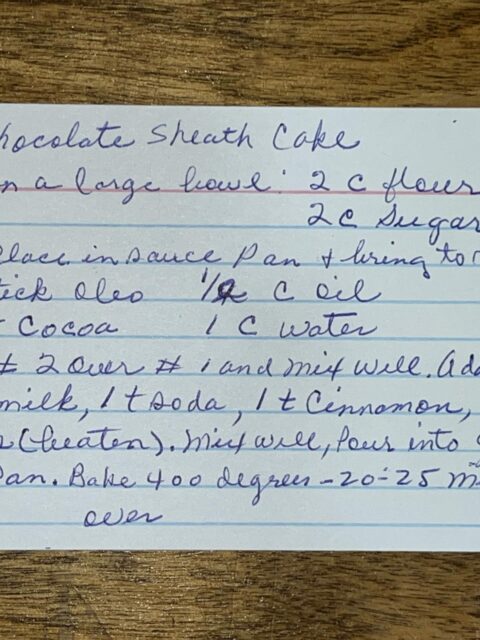 hocolate Sheath Cake
n a large bowl: 2 c flour
2 c Sugar
lace in sauce Pan & bring to
tick Oleo 1/2 C oil
Cocoa 1 C water
# 2 over # 1 and mix well. Ad
milk, 1 t soda, 1 t Cinnamon,
(beaten). Mix well, Pour into
Pan. Bake 400 degrees - 20-25 m
over